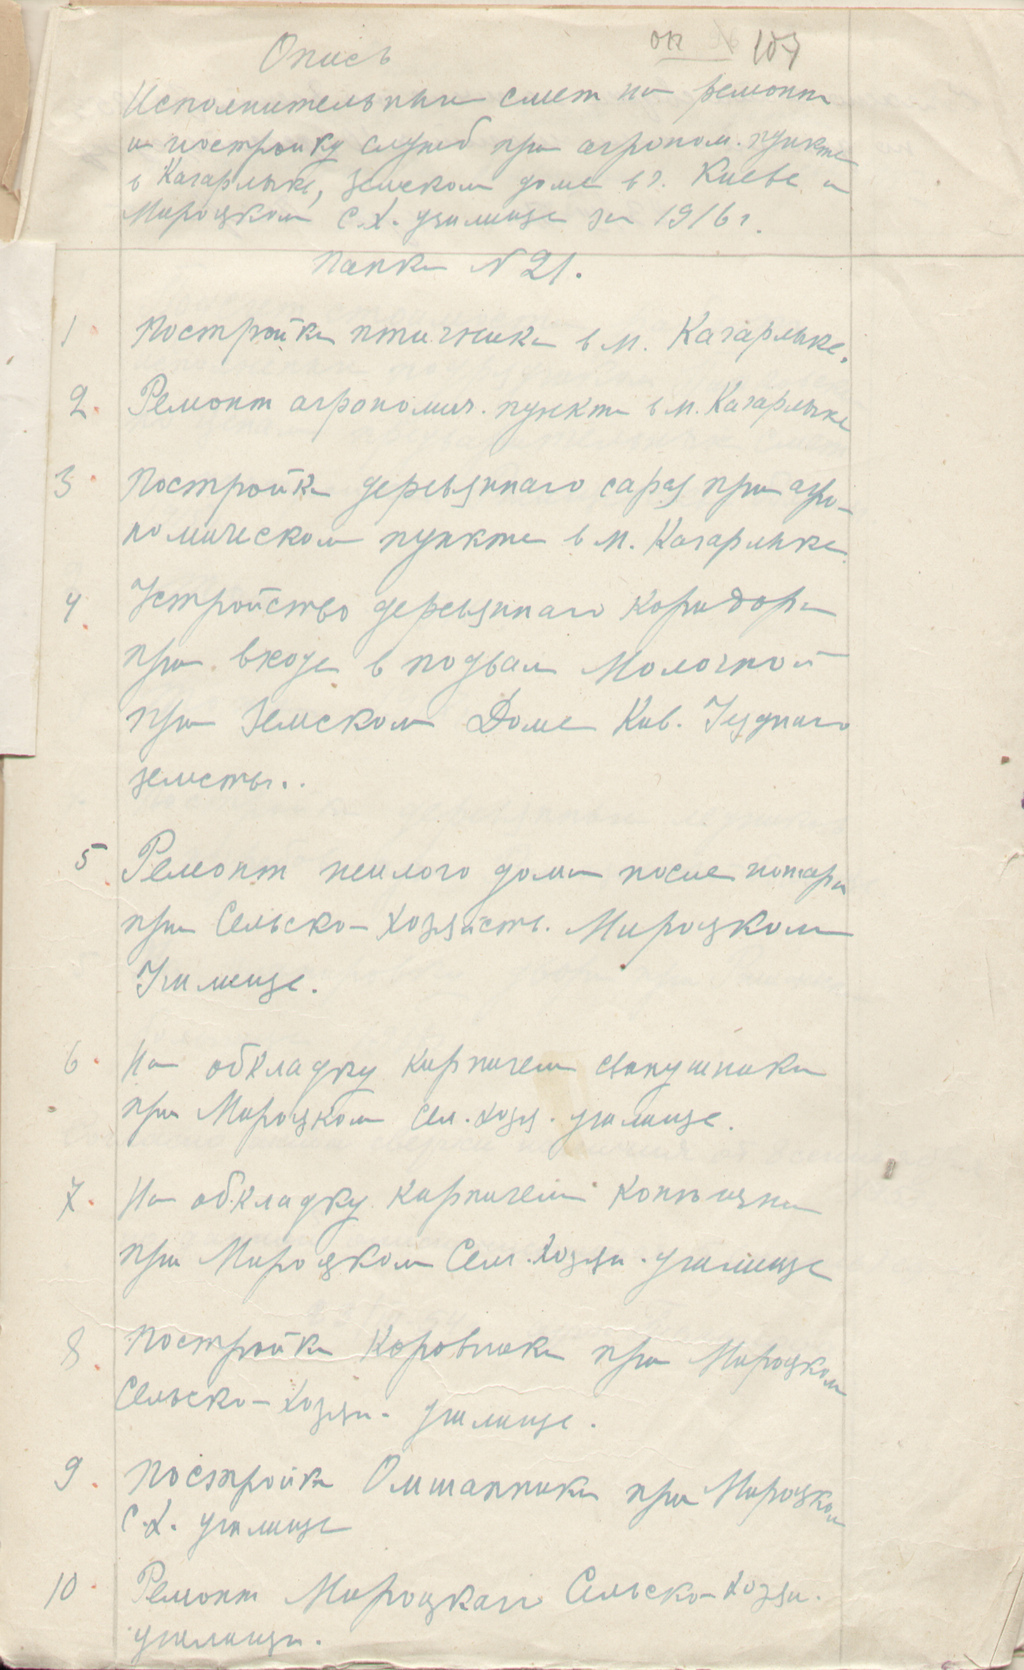 оп 107
Опись
Исполнительных смет на ремонт
и постройку служб при агроном. пункте
в Кагарлыке, земском доме в г. Киеве и
Мироцком С.Х. училище за 1916 г.
Папка № 21.
1. Постройка птичника в м. Кагарлыке.
2. Ремонт агрономич. пункта в м. Кагарлыке
3. Постройка деревяннаго сарая при агро-
номическом пункте в м. Кагарлыке
4. Устройство деревяннаго коридора
при входе в подвал Молочной
при Земском Доме Киев. Уездного
земства.
5. Ремонт жилого дома после пожара
при Сельско-Хозяйств. Мироцком
Училище.
6. На обкладку кирпичем свинушника
при Мироцком Сел. хозя. училище.
7. На обкладку кирпичем конюшни
при Мироцком Сель. Хозяи. училище
8. Постройка Коровника при Мироцком
Сельско-Хозяи. училище.
9. Постройка Омшанника при Мироцком
С.Х. училище
10. Ремонт Мироцкаго Сельско-Хозяи.
училища.